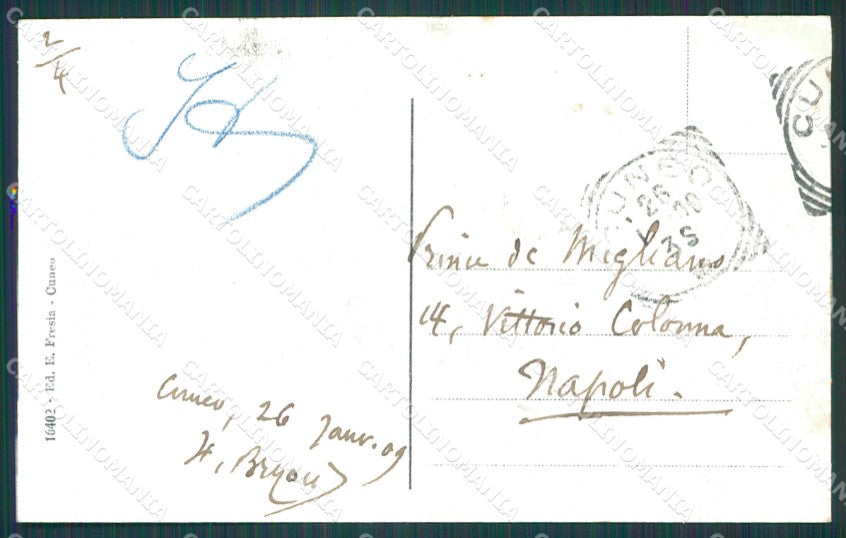 2/4
CUNEO
26
09
3S
CU
Prince de Migliano
14, Vittorio Colonna,
Napoli.
Cuneo, 26 Janr. 09
H. Bryon
16402 - Ed. E. Fresia - Cuneo
CARTOLINOMANIA